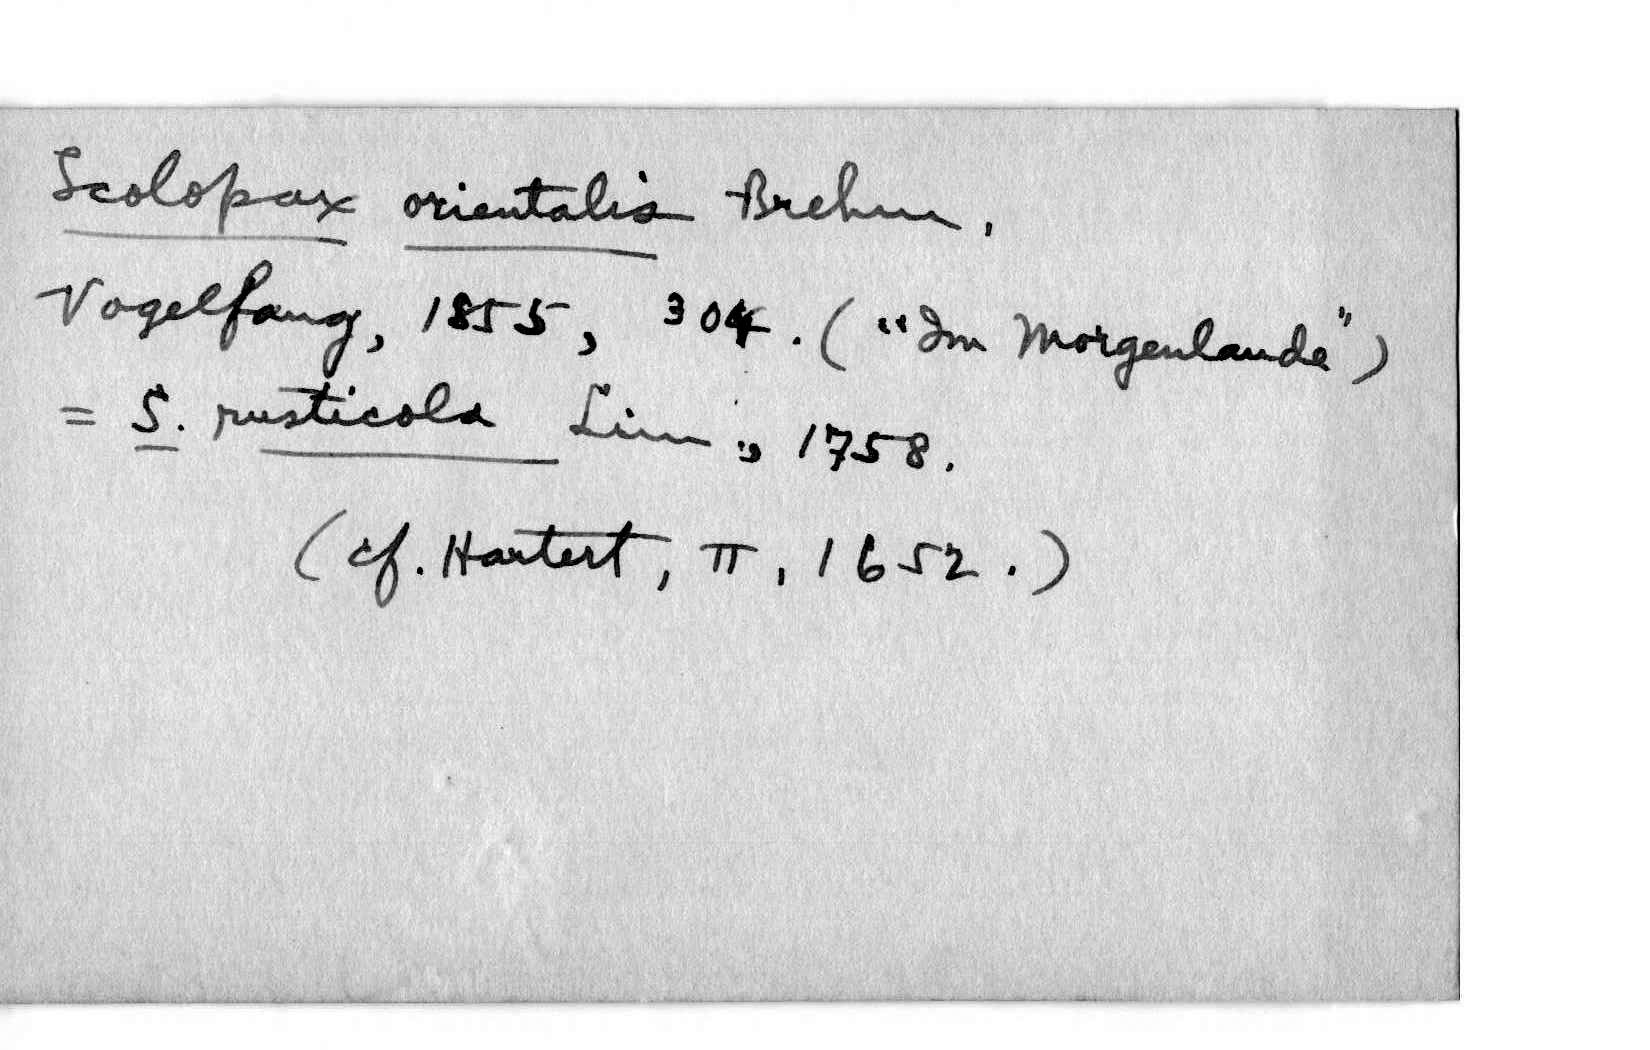 Scolopax orientalis Brehm,
Vogelfang, 1855, 304. ("Im Morgenlande")
= S. rusticola Linn., 1758.
(cf. Hartert, II, 1652.)